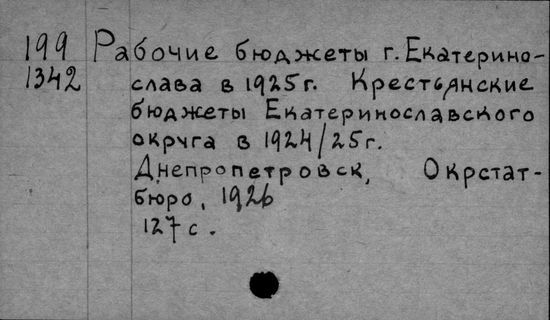 199 Рабочие бюджеты г. Екатерино-
1342 слава в 1925 г. Крестьянские
бюджеты Екатеринославского
округа в 1924/25 г.
Днепропетровск, Окрстат-
бюро, 1926
127 с.